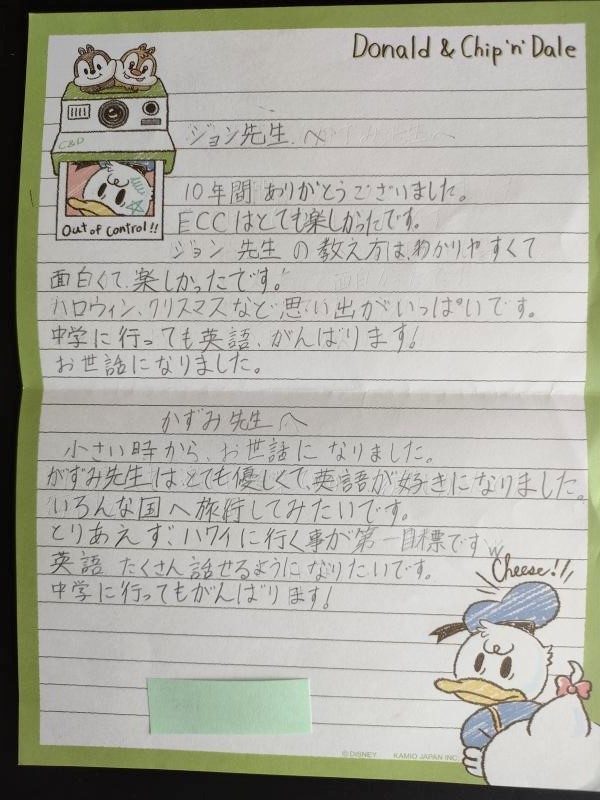 Donald & Chip 'n' Dale
C&D
Out of control!!
ジョン先生へ
10年間ありがとうございました。
ECCはとても楽しかったです。
ジョン先生の教え方は、わかりやすくて
面白くて、楽しかったです。
ハロウィン、クリスマスなど思い出がいっぱいです。
中学に行っても英語、がんばります!
お世話になりました。
かずみ先生へ
小さい時から、お世話になりました。
かずみ先生は、とても優しくて、英語が好きになりました。
いろんな国へ旅行してみたいです。
とりあえず、ハワイに行く事が第一目標ですw
英語たくさん話せるようになりたいです。
中学に行ってもがんばります!
Cheese!!
© DISNEY KAMIO JAPAN INC.